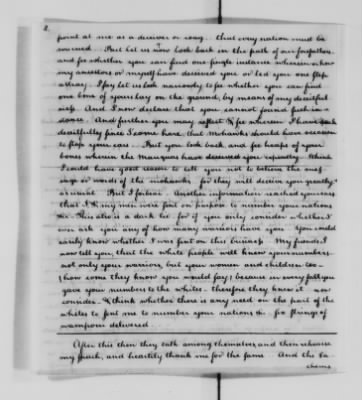 2.
point at me as a deceiver or roag. that every nation must be
worried. But let us now look back in the path of our forefathers,
and see whether you can find one single instance wherein when
my ancestors or myself have deceived you or led you one step
astray. I say let us look narrowly to see whether you can find
one bone of yours lay on the ground, by means of my deceitful
ness. And I now declare that you cannot found such in-
stance. And further you may reflect & see wherein I have spoke
deceitfully since I come here, that Mohawks should have occasion
to stop your ears. But you look back, and see heaps of your
bones wherein the Mauquas have deceived you repeatedly. I think
I could have good reason to tell you not to believe the mes-
sage or words of the mohawks, for they will deceive you greatly
as usual. But I forbear. Another information reached your ears
that I & my men were sent on purpose to number your nations
&c. This also is a dark lie. for if you only consider whether I
ever ask you any of how many warriors have you. You could
easily know whether I was sent on this business. My friends I
now tell you, that the white people will know your numbers
not only your warriors, but your women and children too—
(how came they know you would say) because in every fall you
gave your numbers to the whites— therefore they knew it now
consider— & think whether there is any need on the part of the
whites to send me to number your nations &c. six strings of
wampum delivered.
After this then they talk among themselves, and then rehearse
my speech, and heartily thank me for the same. And the Sa-
chems